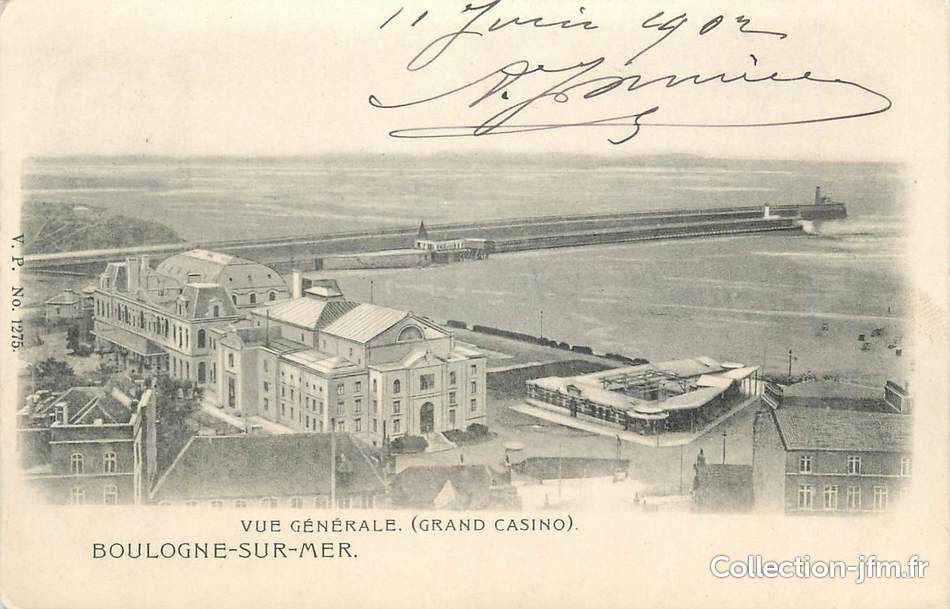 11 Juin 1902
V. P. No. 1275.
VUE GÉNÉRALE. (GRAND CASINO).
BOULOGNE-SUR-MER.
Collection-jfm.fr